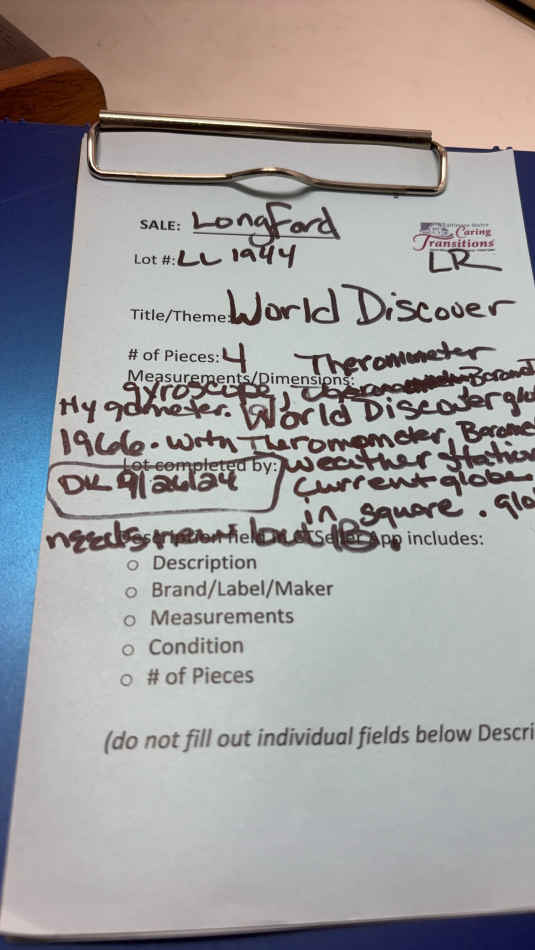 SALE: Longford
Caring
Transitions
Lot #: LL 1944
LR
Title/Theme: World Discover
# of Pieces: 4 Theromometer
Measurements/Dimensions:
gyroscope,
Hygdmeter. World Discover glo
1966. with Theromometer, Barome
Lot completed by: weather station
DK 9/26/24 Current globe
in square. glo
needs new but 1B.
Description field in eSeller App includes:
o Description
o Brand/Label/Maker
o Measurements
o Condition
o # of Pieces
(do not fill out individual fields below Descri